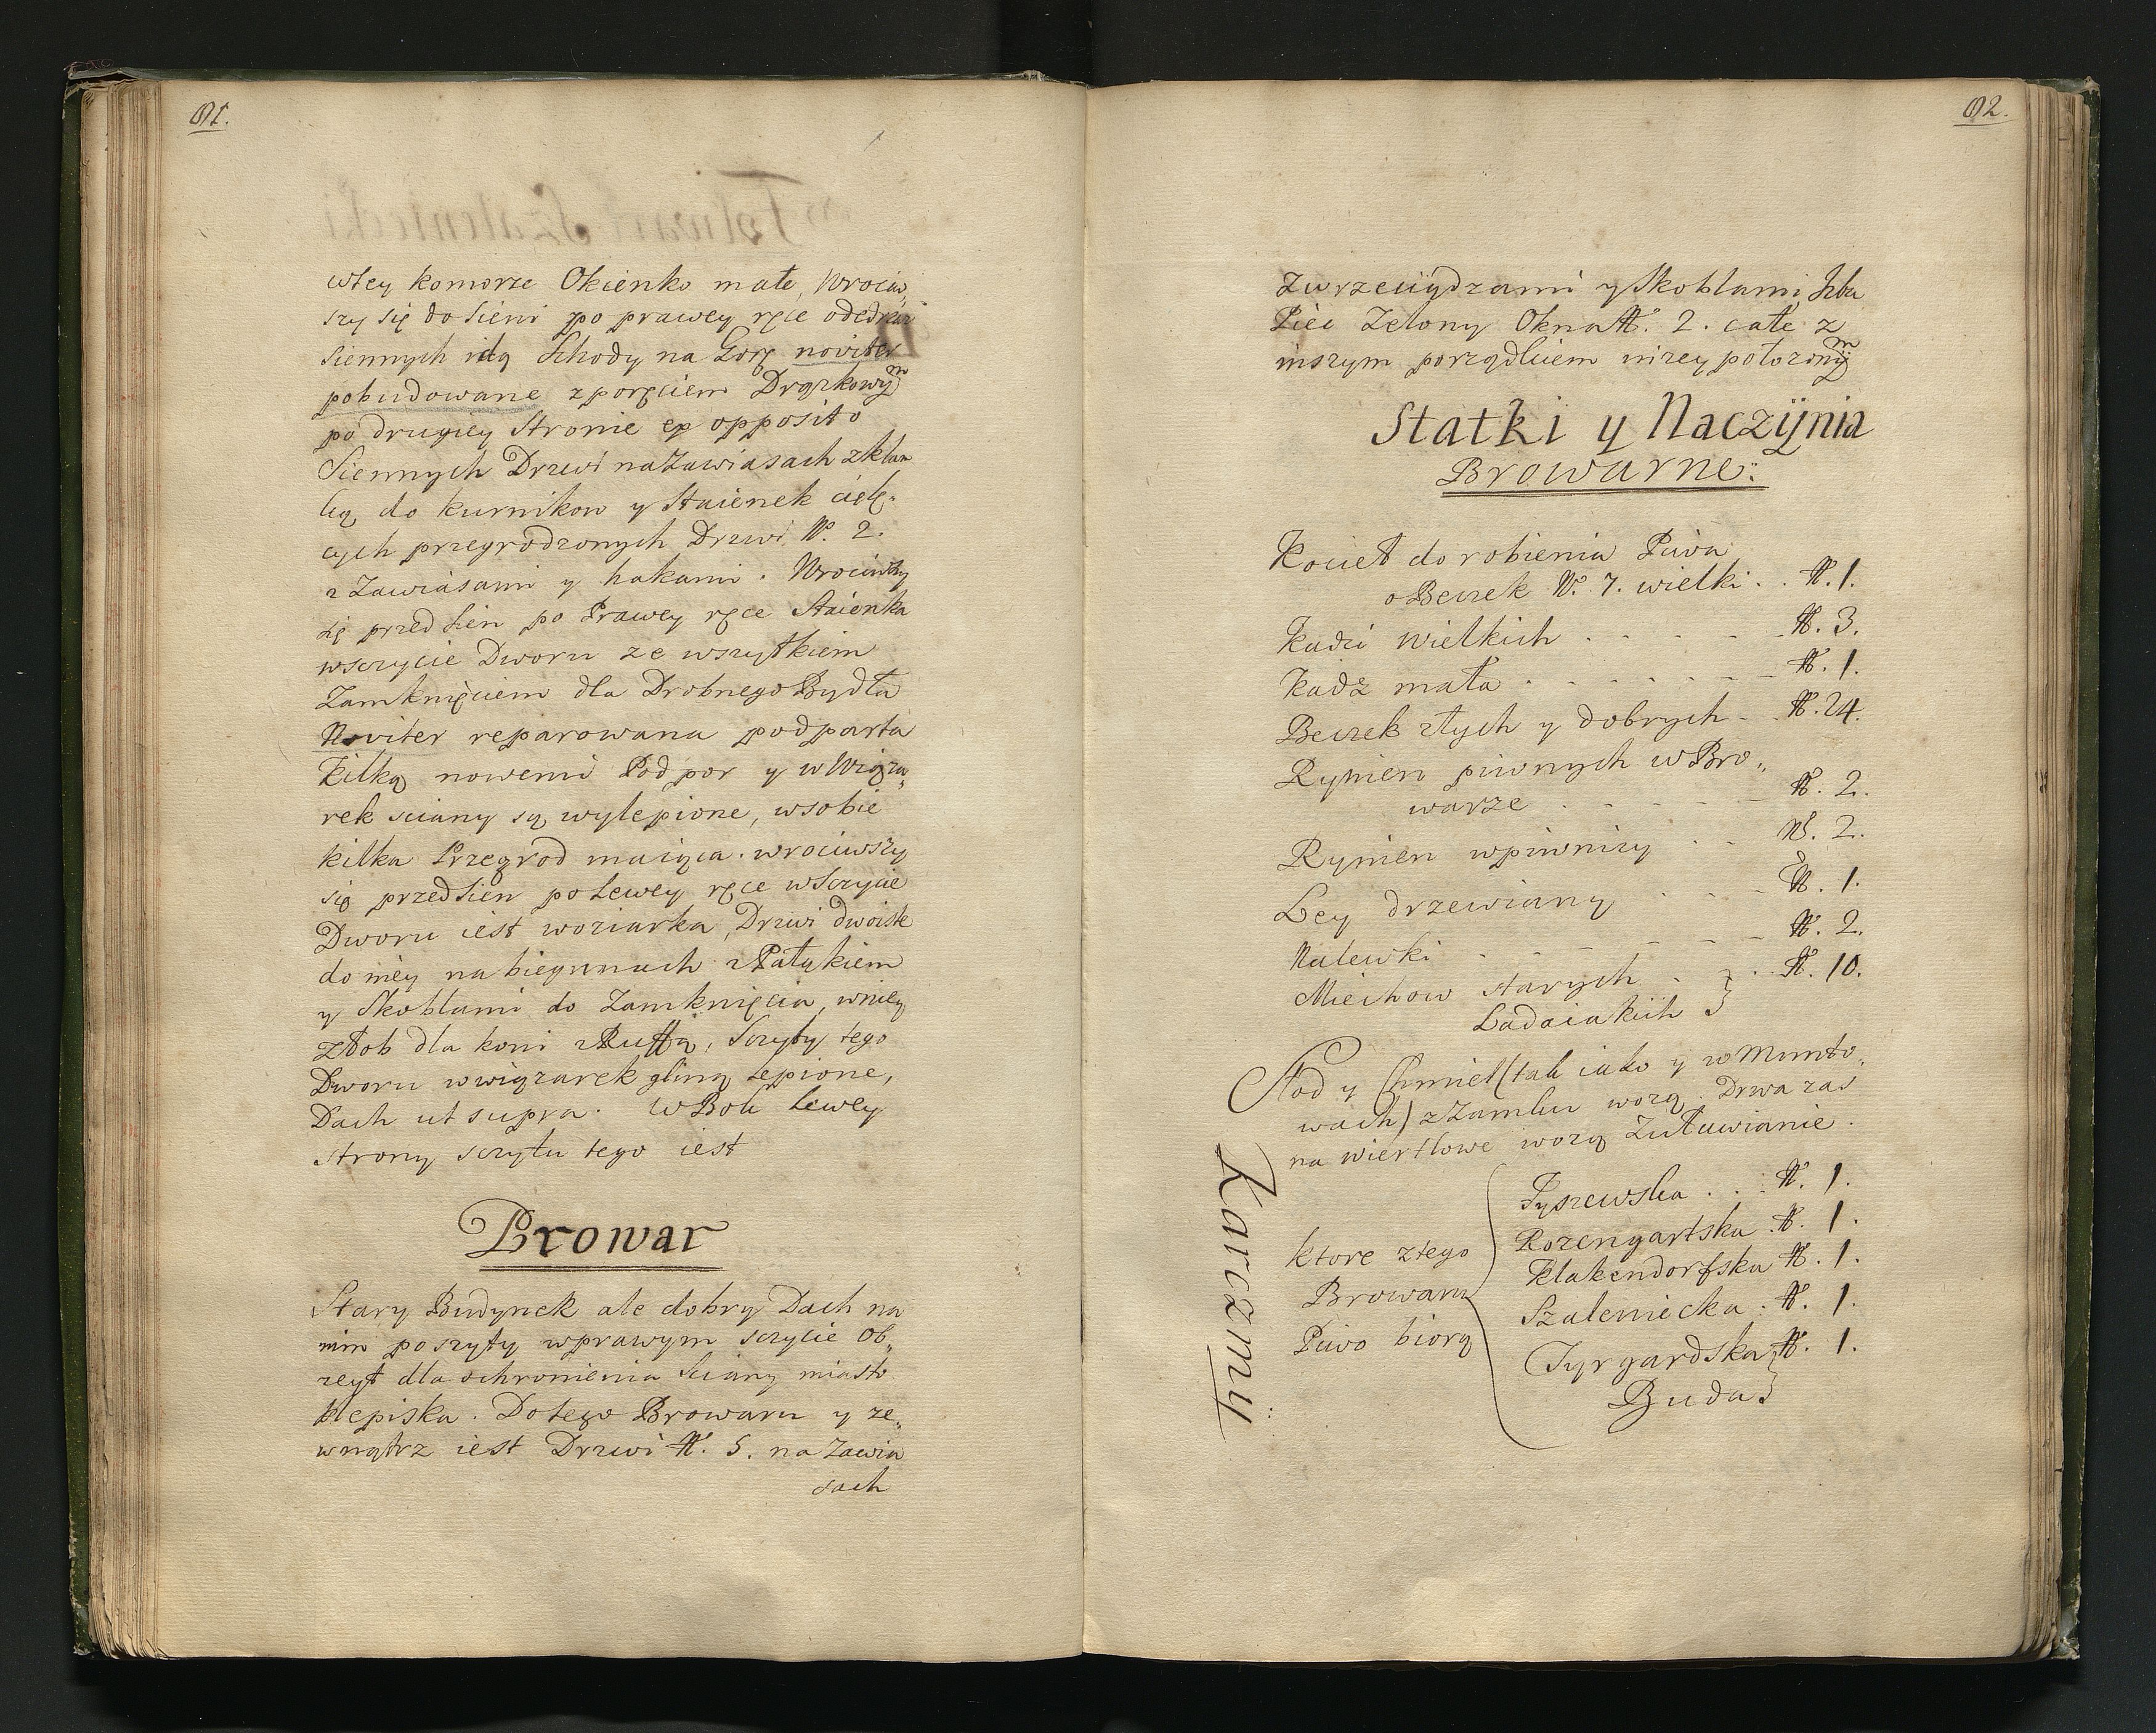 91.
wtey komorze Okienko małe, Wrociw,
szy się do Sieni po prawey ręce odedrzwi
Siennych idą Schody na Gorę noviter
pobudowane z poręciem Drązkowym
po drugiey Stronie ex opposito
Siennych Drzwi na Zawiasach z klam
ką do kurnikow y Staienek cielę,
cych przegrodzonych Drzwi N. 2.
z Zawiasami y hakami. Wrociwszy
się przed Sien po Prawey ręce Staienka
wszczycie Dworu ze wszytkiem
Zamknięciem dla Drobnego Bydła
Noviter reparowana podparta
kilką nowemi Podpor y w Wiąza,
rek sciany są wylepione, wsobie
kilka Przegrod maiąca. wrociwszy
się przed Sien po Lewey ręce w Szczycie
Dworu iest woziarka, Drzwi dwoiste
do niey na biegunach z Pałąkiem
y Skoblami do Zamknięcia, wniey
złob dla koni z Ruffą, Szczyty tego
Dworu w wiązarek gliną Lepione,
Dach ut supra. W Bok Lewey
strony szczytu tego iest
Browar
Stary Budynek ale dobry Dach na
nim poszyty wprawym szczycie Ob,
reyt dla ochronienia Sciany miasto
klepiska. Do tego Browaru y ze,
wnątrz iest Drzwi N. 5. na Zawia
sach
92.
Zwrzeciądzami y Skoblami, Izba
Piec Zelony Okna N. 2. całe z
inszym porządkiem nizey położonym
Statki y Naczÿnia
Browarne:
Kocieł do robienia Piwa
o Beczek N. 7. wielki . . N. 1.
Kadzi wielkich . - - - - N. 3.
Kadź mała . - - - - - N. 1.
Beczek złych y dobrych - . N. 24.
Rynien piwnych w Bro,,
warze . - - - - N. 2.
Rynien wpiwnicy . - N. 2.
Ley drzewiany . - - N. 1.
Nalewki - - - - - N. 2.
Miechow starych . } . . N. 10.
Ladaiakich
Słod y Chmiel (tak iako y w Munto,,
wach) z Zamku wozą. Drwa zas
na wiertlowe wozą Zuławianie.
Karczmy:
ktore z tego
Browaru
Piwo biorą
Tyszewska . . N. 1.
Rozengartska . N. 1.
Klakendorfska N. 1.
Szaleniecka . N. 1.
Tyrgardska } N. 1.
Buda